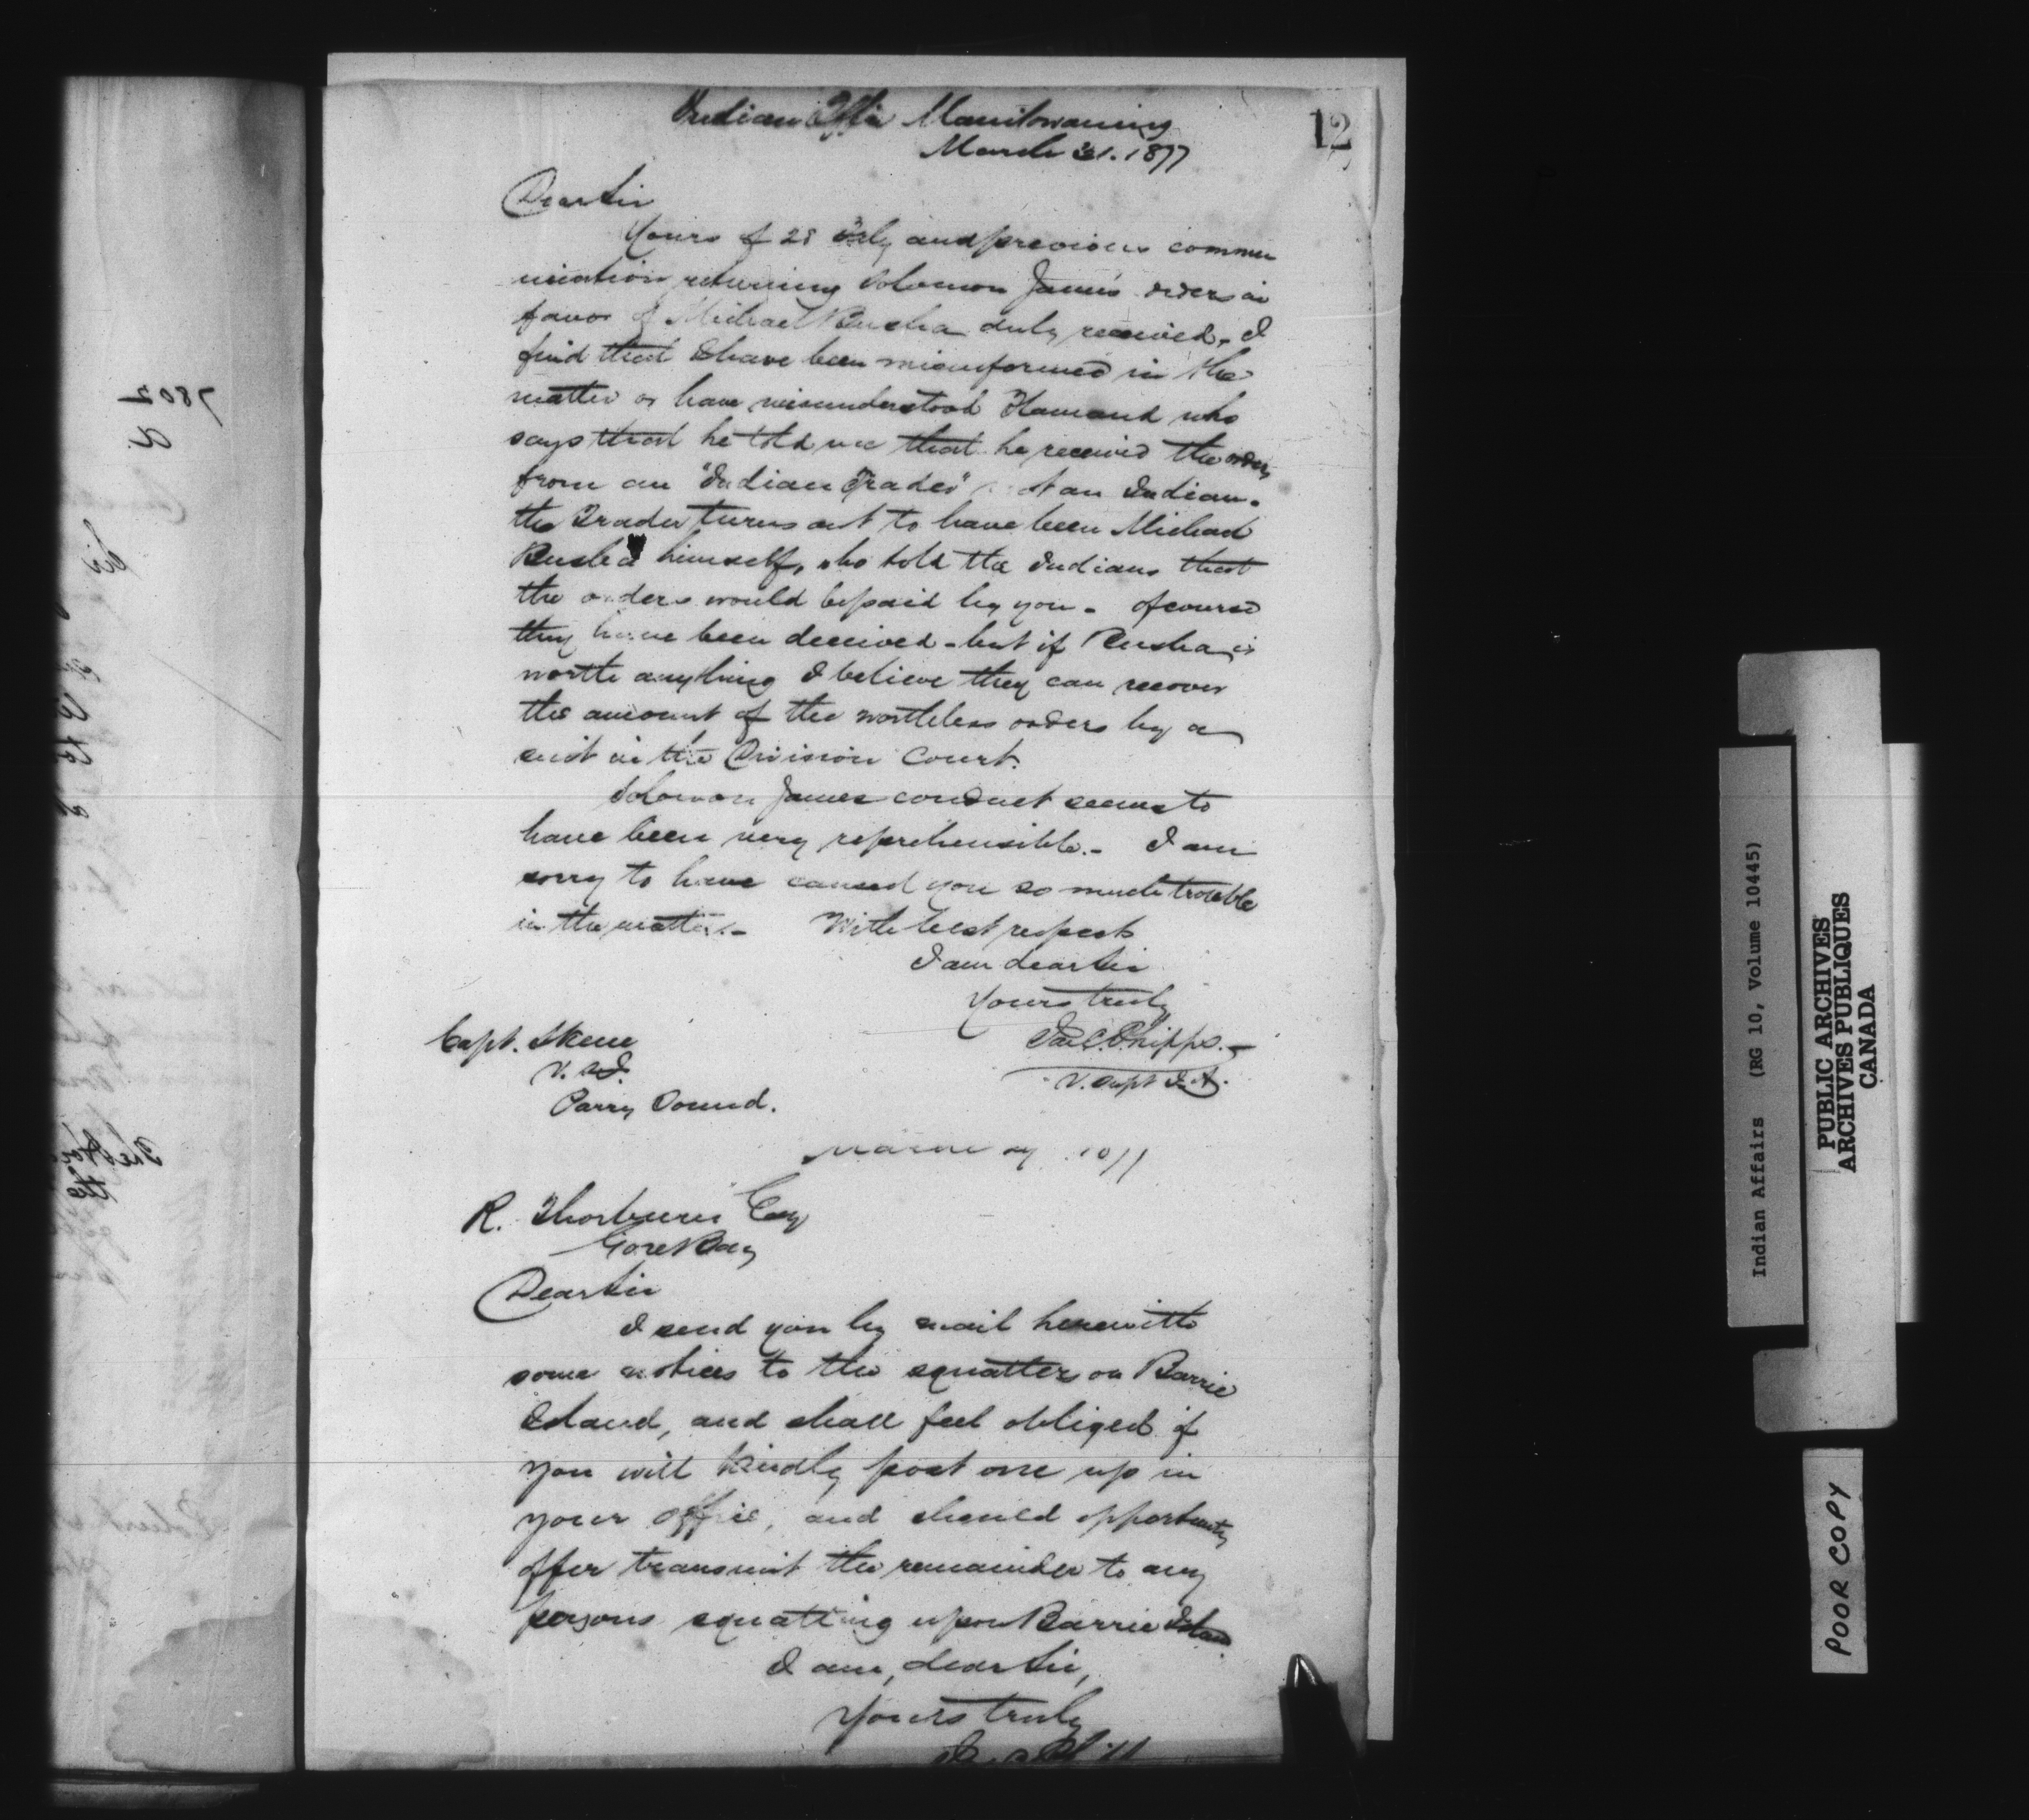 12
Indian Office Manitowaning
March 31. 1877
Dear Sir
Yours of 28 and previous commu
nication returning Solomon James orders in
favor of Michael Rusha duly received. I
find that I have been misinformed in the
matter or have misunderstood who
says that he told me that he received the orders
from an "Indian Trader" not an Indian.
the Trader turns out to have been Michael
Rusha himself, who told the Indians that
the orders would be paid by you. Of course
they have been deceived - but if Rusha is
worth anything I believe they can recover
the amount of the worthless orders by a
suit in the Division Court.
Solomon James conduct seems to
have been very reprehensible. - I am
sorry to have caused you so much trouble
in the matter. - With best respects
I am dear Sir
Yours truly
Jas C. Phipps. -
V. Supt I. A.
Capt. Skene
V. S. I.
Parry Sound.
March 1877
R. Thorburn Esq
Gore Bay
Dear Sir
I send you by mail herewith
some notices to the squatters on Barrie
Island, and shall feel obliged if
you will kindly post one up in
your office, and should opportunity
offer transmit the remainder to any
persons squatting upon Barrie Island
I am, dear Sir,
Yours truly
7802
Sir
Indian Affairs (RG 10, Volume 10445)
PUBLIC ARCHIVES
ARCHIVES PUBLIQUES
CANADA
POOR COPY